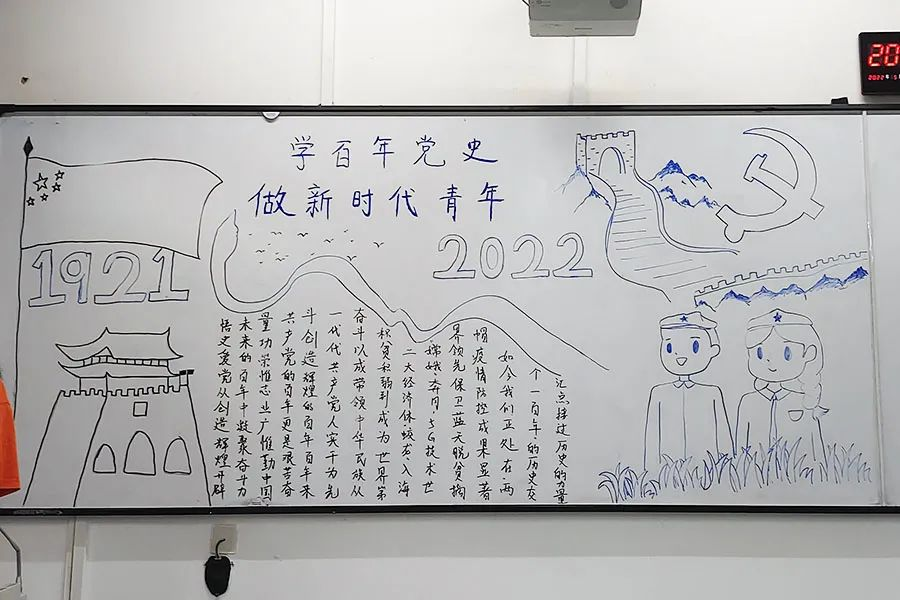 学百年党史
做新时代青年
1921
2022
悟史爱党从创造辉煌开辟
未来的百年中凝聚奋斗力
量功崇惟志业广惟勤中国
共产党的百年更是艰苦奋
斗创造辉煌的百年百年来
一代代共产党人实干为先
奋斗以成带领中华民族从
积贫和弱到成为世界第
二大经济体，蛟龙入海
嫦娥奔月，5G技术世
界领先保卫蓝天脱贫摘
帽疫情防控成果显著
如今我们正处在两
个一百年的历史交
汇点接过历史的力量
20
2022